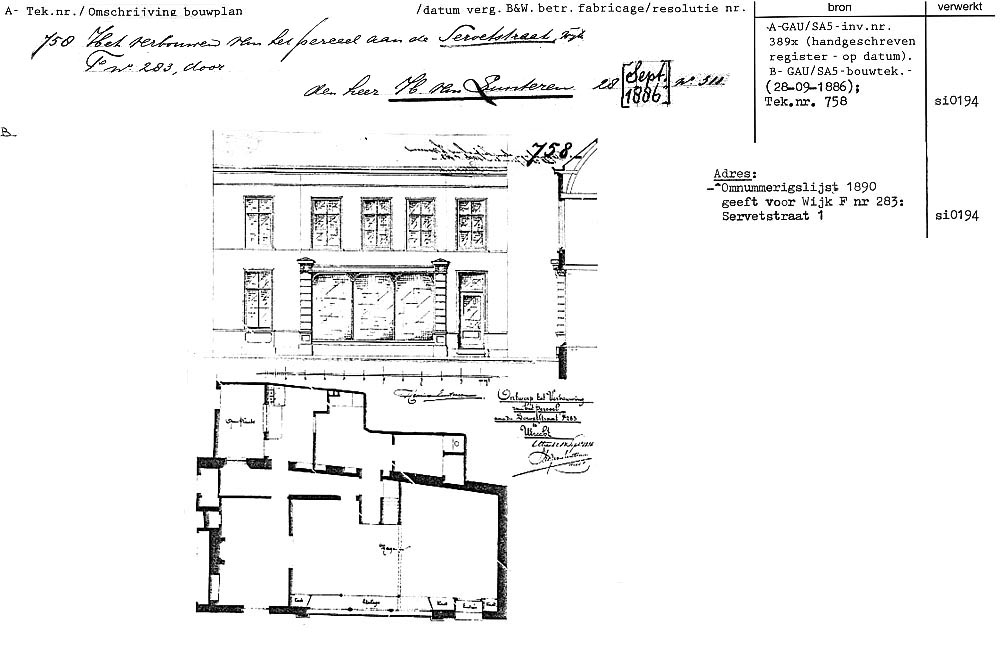 A- Tek.nr./ Omschrijving bouwplan /datum verg. B&W. betr. fabricage/resolutie nr.
bron
verwerkt
758 Het verbouwen van het perceel aan de Servetstraat, Wijk
F nº 283, door
den heer H. van Lunteren 28 Sept. 1886 Nº 311
A-GAU/SA5-inv.nr.
389x (handgeschreven
register - op datum).
B- GAU/SA5-bouwtek.-
(28-09-1886);
Tek.nr. 758
si0194
B
758.
Adres:
-^Omnummerigslijst 1890
geeft voor Wijk F nr 283:
Servetstraat 1
si0194
Ontwerp tot Verbouwing
van het perceel
aan de Servetstraat F 283
te
Utrecht
Etalage